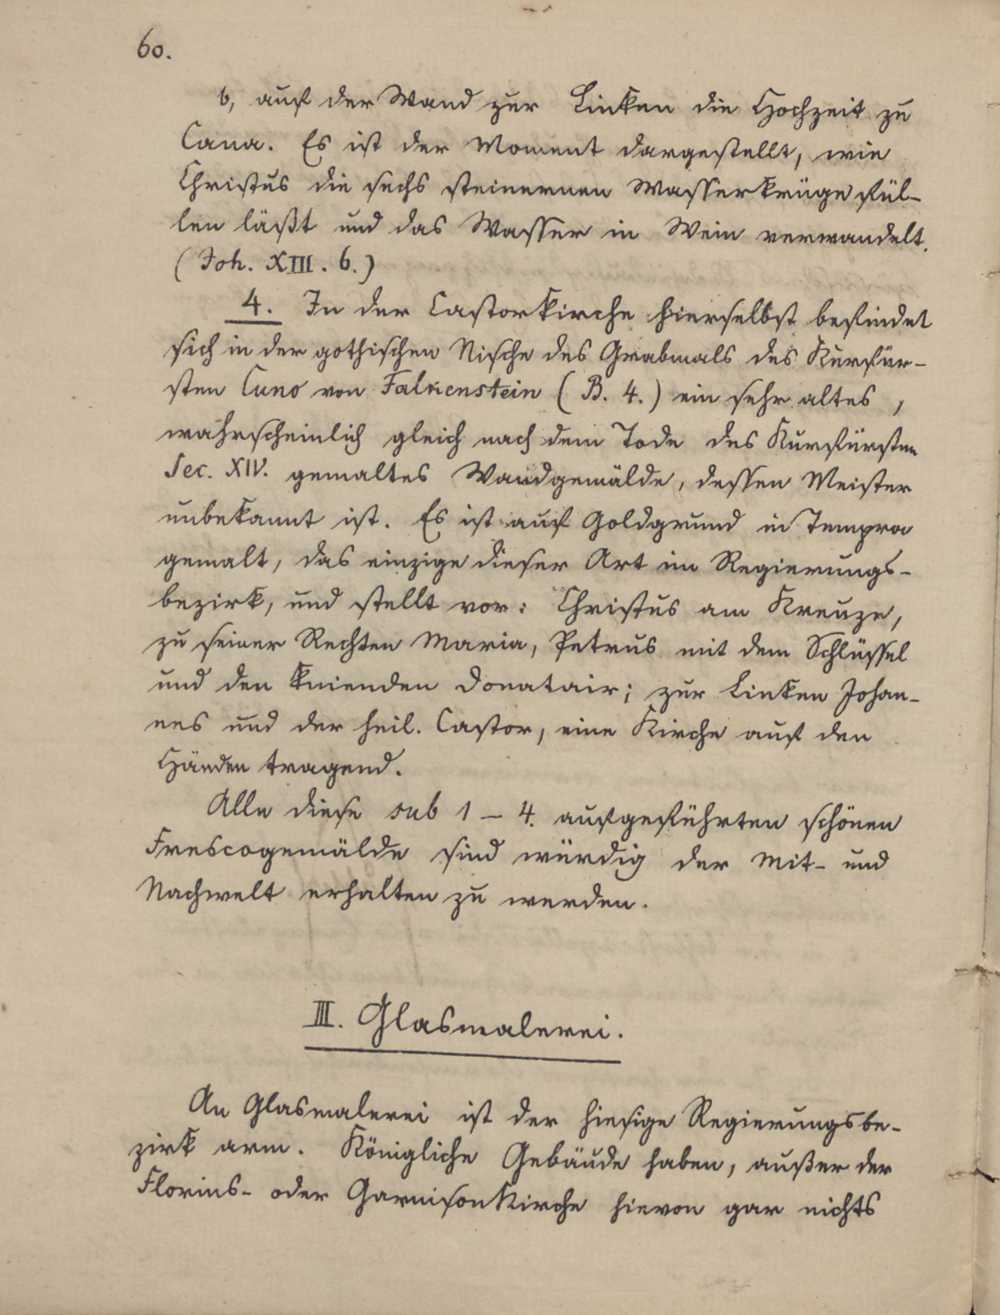 60.
b, auf der Wand zur Linken die Hochzeit zu
Cana. Es ist der Moment dargestellt, wie
Christus die sechs steinernen Wasserkrüge fül-
len läßt und das Wasser in Wein verwandelt.
(Joh. XIII. 6.)
4. In der Castorkirche hierselbst befindet
sich in der gothischen Nische des Grabmals des Kurfür-
sten Cuno von Falkenstein (B. 4.) ein sehr altes,
wahrscheinlich gleich nach dem Tode des Kurfürsten
Sec. XIV. gemaltes Wandgemälde, dessen Meister
unbekannt ist. Es ist auf Goldgrund in Tempra
gemalt, das einzige dieser Art im Regierungs-
bezirk, und stellt vor: Christus am Kreuze,
zu seiner Rechten Maria, Petrus mit dem Schlüssel
und den knienden Donatair; zur Linken Johan-
nes und der heil. Castor, eine Kirche auf den
Händen tragend.
Alle diese sub 1 – 4. aufgeführten schönen
Frescogemälde sind würdig der Mit- und
Nachwelt erhalten zu werden.
III. Glasmalerei.
An Glasmalerei ist der hiesige Regierungsbe-
zirk arm. Königliche Gebäude haben, außer der
Florins- oder Garnisonkirche hievon gar nichts